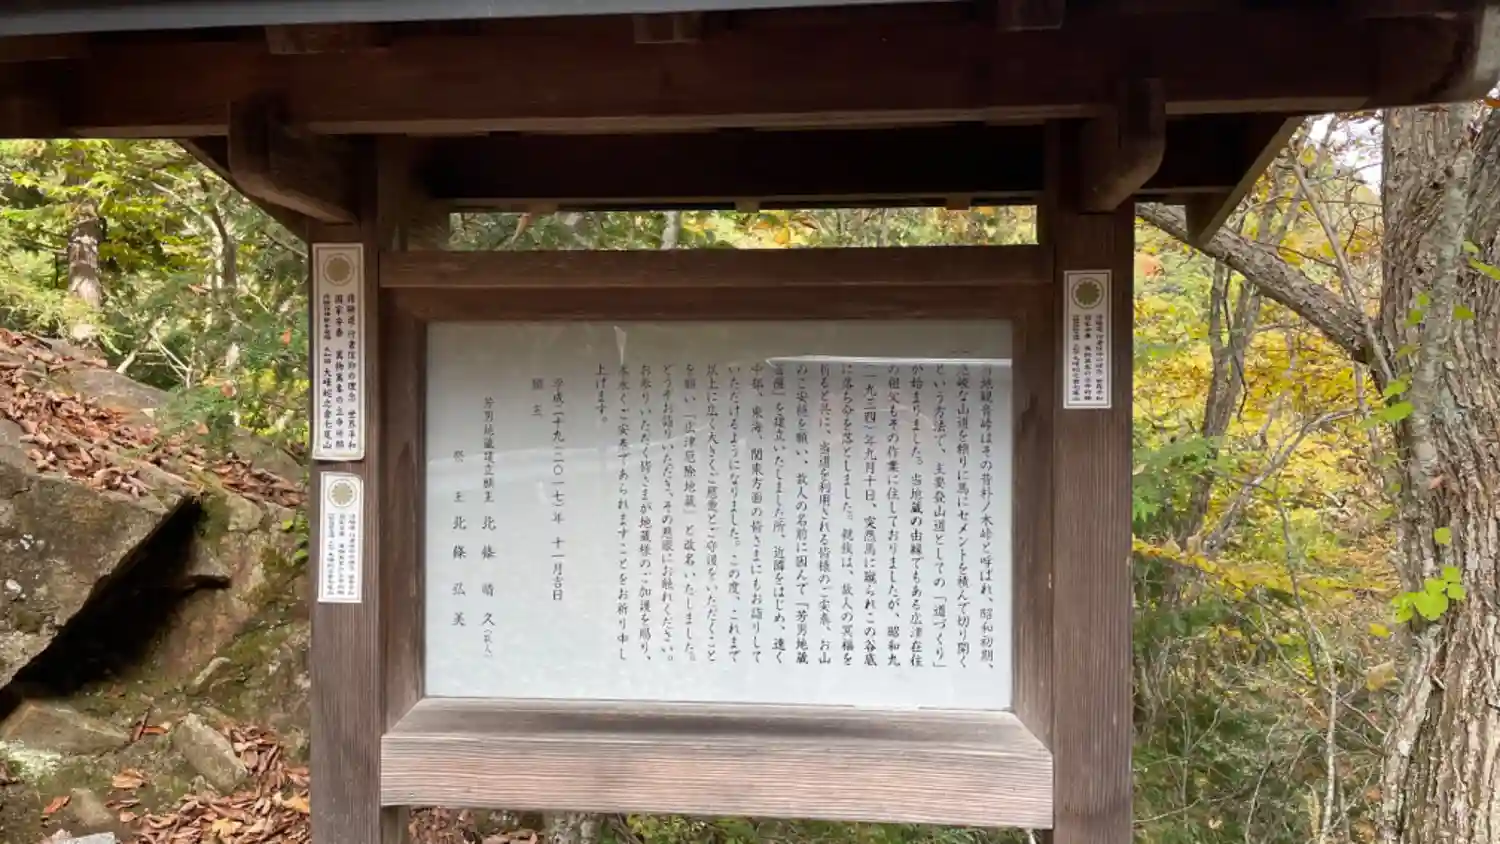 当地観音峠はその昔朴ノ木峠と呼ばれ、昭和初期、
急峻な山道を頼りに馬にセメントを積んで切り開く
という方法で、主要登山道としての「道づくり」
が始まりました。当地蔵の由縁でもある広津在住
の祖父もその作業に住しておりましたが、昭和九
(一九三四)年九月十日、突然馬に蹴られこの谷底
に落ち命を落としました。親族は、故人の冥福を
祈ると共に、当道を利用される皆様のご安泰、お山
のご安穏を願い、故人の名前に因んで『芳男地蔵
菩薩』を建立いたしました所、近隣をはじめ、遠く
中部、東海、関東方面の皆さまにもお詣りして
いただけるようになりました。この度、これまで
以上に広く大きくご慈愛とご守護をいただくこと
を願い『広津厄除地蔵』と改名いたしました。
どうぞお詣りいただき、その慈眼にお触れください。
お参りいただく皆さまが地蔵様のご加護を賜り、
末永くご安泰であられますことをお祈り申し
上げます。
平成二十九(二〇一七)年 十一月吉日
願主
芳男地蔵建立願主 北條 晴久(故人)
祭主 北條 弘美
修験道 行者信仰の理念 世界平和
國家安泰 萬物萬象の立命祈願